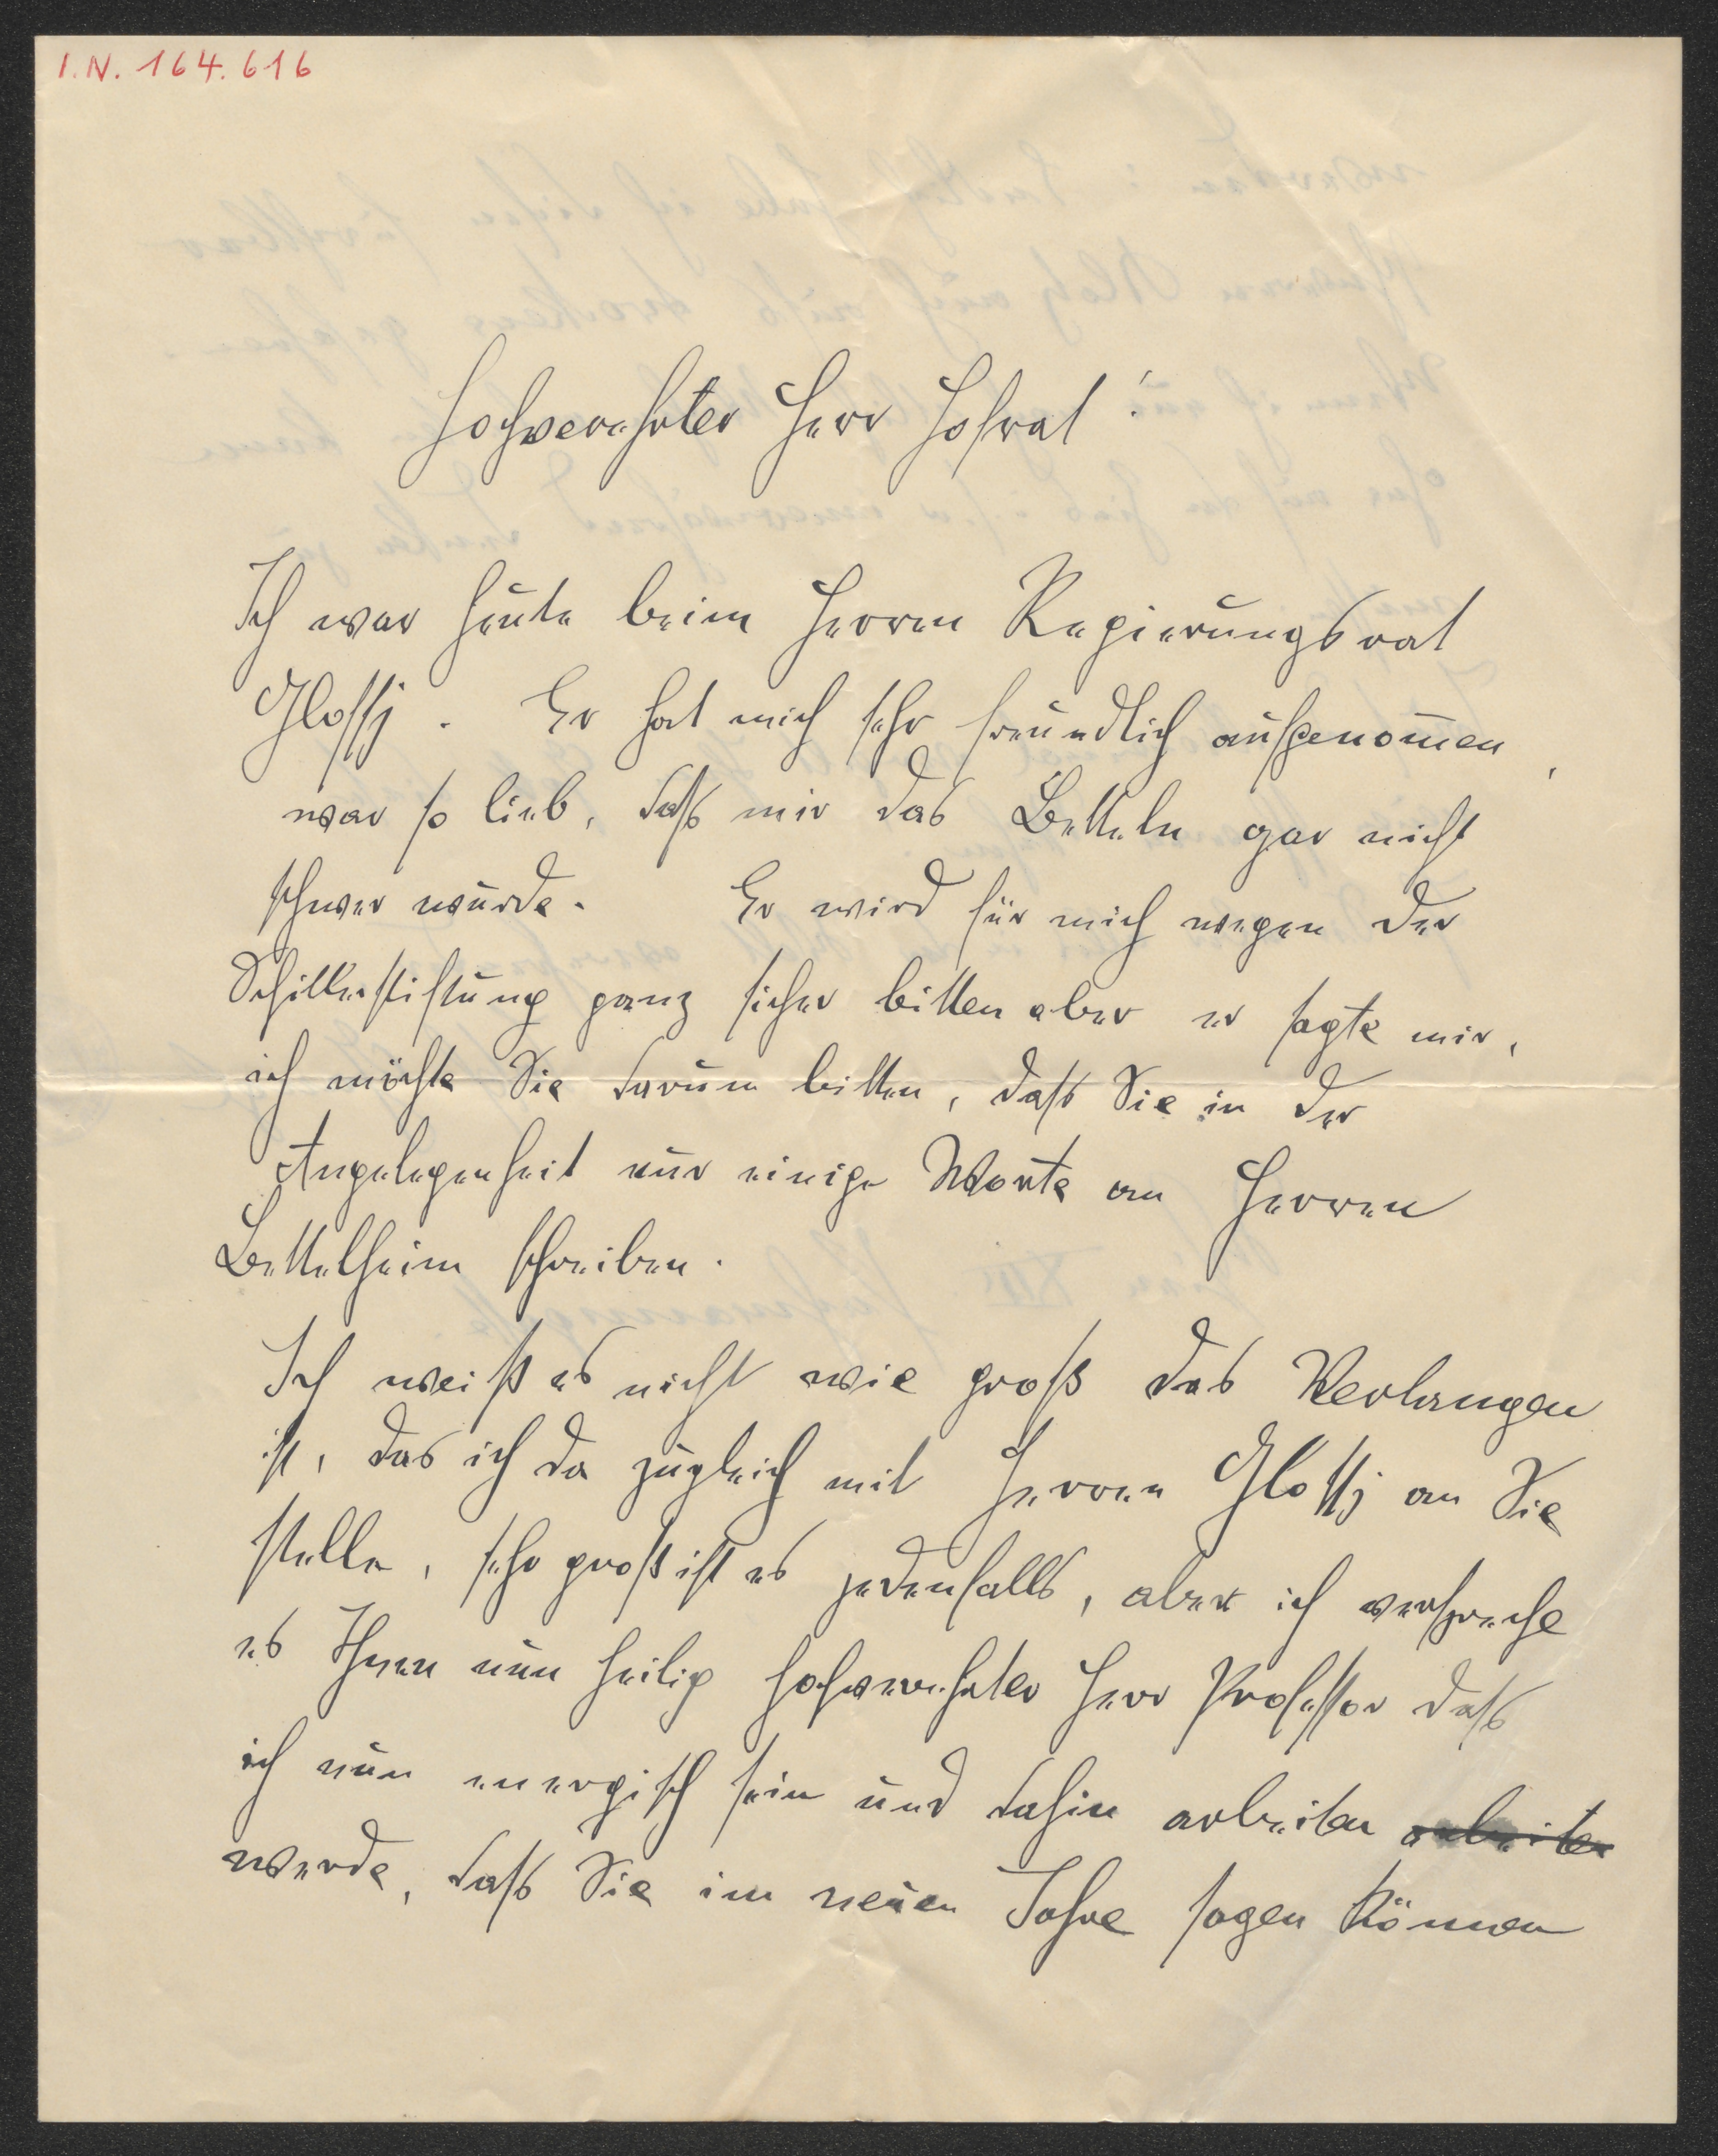 I.N. 164.616
Hochverehrter Herr Hofrat!
Ich war heute beim Herren Regierungsrat
Glossj. Er hat mich sehr freundlich aufgenom̄en,
war so lieb, daſs mir das Betteln gar nicht
schwer wurde. Er wird für mich wegen der
Schillerstiftung ganz sicher bitten aber er sagte mir,
ich möchte Sie darum bitten, daſs Sie in der
Angelegenheit nur einige Worte an Herren
Bettelheim schreiben.
Ich weiß es nicht wie groß das Verlangen
ist, das ich da zugleich mit Herren Glossj an Sie
stelle, sehr groß ist es jedenfalls, aber ich verspreche
es Ihnen nun heilig hochverehrter Herr Professor daſs
ich nun energisch sein und dahin arbeiten arbeiten
werde, daſs Sie im neuen Jahre sagen können